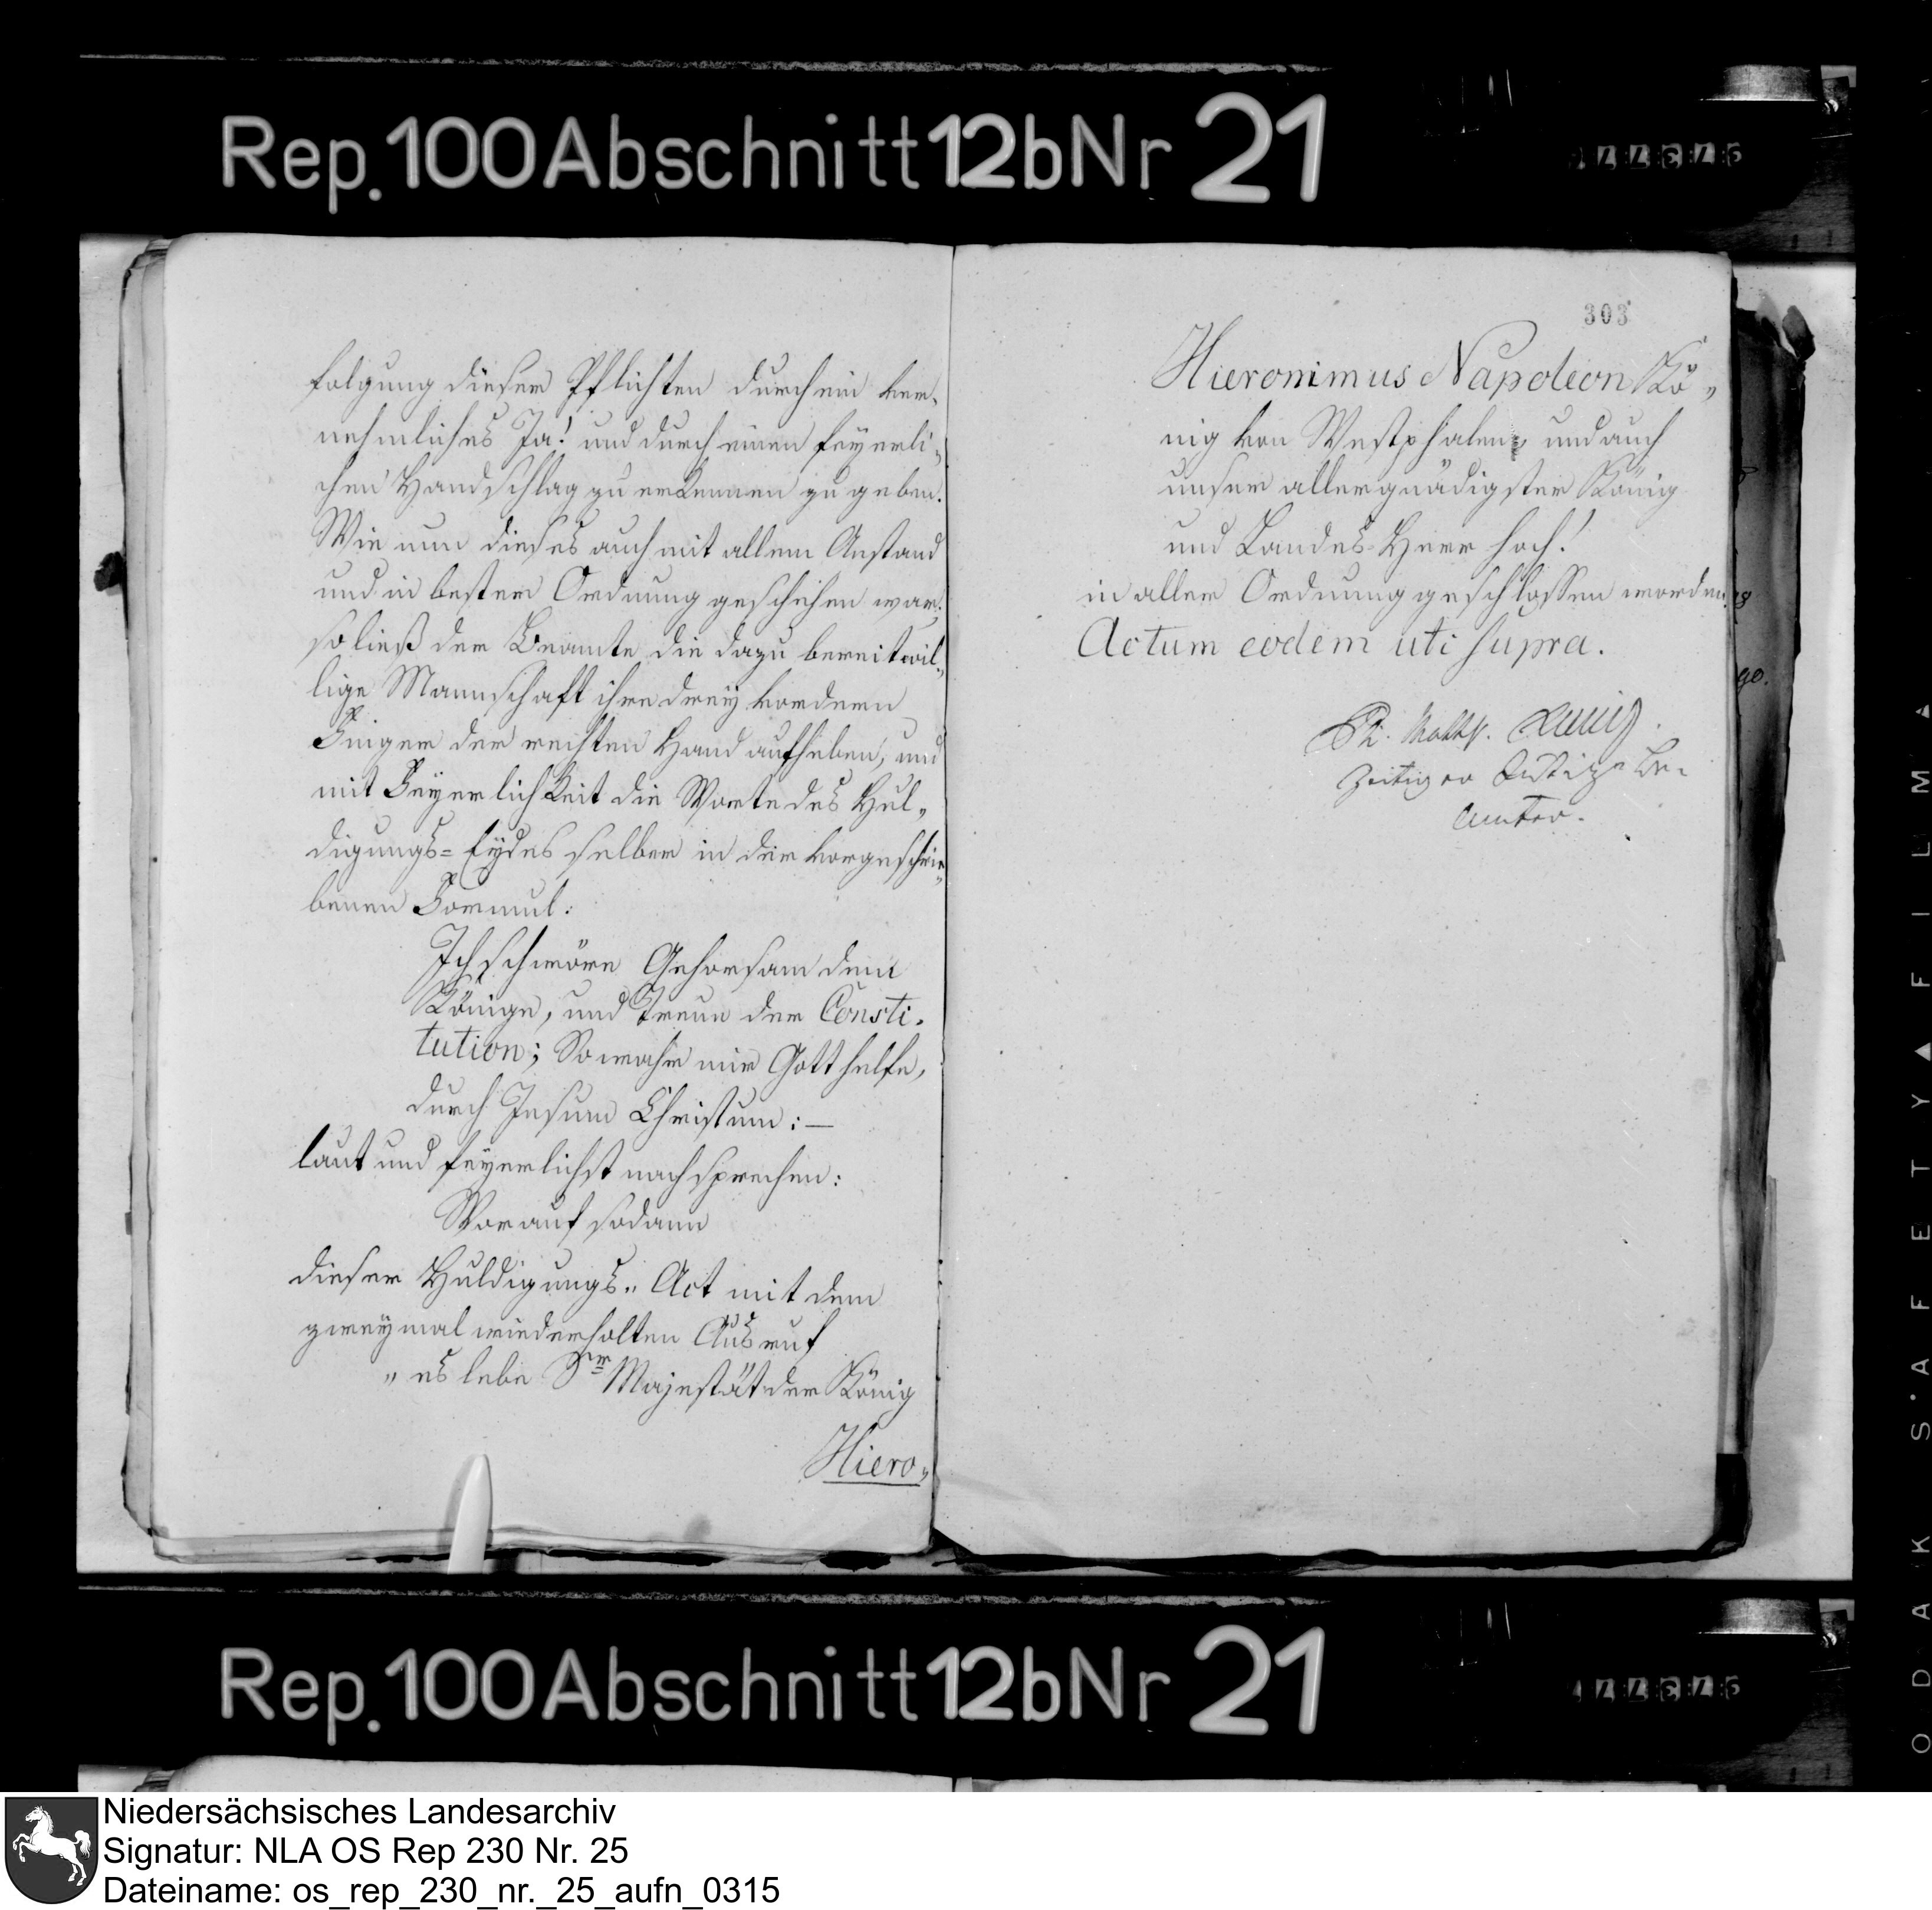 Rep. 100 Abschnitt 12b Nr 21
folgung dieser Pflichten durch ein ver-
nehmliches Ja! und durch einen feyerli-
chen Handschlag zu erkennen zu geben.
Wie nun dieses auch mit allem Anstand
und in bester Ordnung geschehen war:
so ließ der Beamte die dazu bereitwil-
lige Mannschaft ihre drey vordern
Finger der rechten Hand aufheben, und
mit Feyerlichkeit die Worte des Hul-
digungs-Eydes selber in der vorgeschrie-
benen Formul:
Ich schwöre Gehorsam dem
Könige, und Treue der Consti-
tution; So wahr mir Gott helfe,
durch Jesum Christum:—
laut und feyerlichst nachsprechen:
Worauf sodann
dieser Huldigungs-Act mit dem
zweymal wiederholten Ausruf
„ es lebe Sr Majestät der König
Hiero-
303
Hieronimus Napoleon Kö-
nig von Westphalen, und auch
unser allergnädigster König
und Landes-Herr hoch!
in aller Ordnung geschlossen worden.
Actum eodem uti supra.
zeitiger Justiz-Be-
amter.
go.
Rep. 100 Abschnitt 12b Nr 21
ODAK S'AFETY FILM
Niedersächsisches Landesarchiv
Signatur: NLA OS Rep 230 Nr. 25
Dateiname: os_rep_230_nr._25_aufn_0315